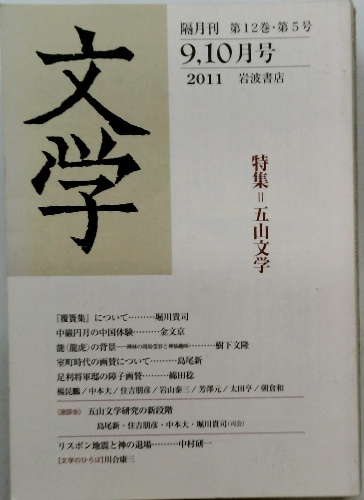 文学
隔月刊 第12巻・第5号
9,10月号
2011 岩波書店
特集=五山文学
『覆簣集』について………堀川貴司
中巖円月の中国体験………金文京
能〈龍虎〉の背景 ………樹下文隆
室町時代の画賛について………島尾新
足利将軍邸の障子画賛………綿田稔
楊昆鵬/中本大/住吉朋彦/岩山泰三/芳澤元/太田亨/朝倉和
〈座談会〉 五山文学研究の新段階
島尾新・住吉朋彦・中本大・堀川貴司(司会)
リスボン地震と神の退場………中村研一
【文学のひろば】川合康三